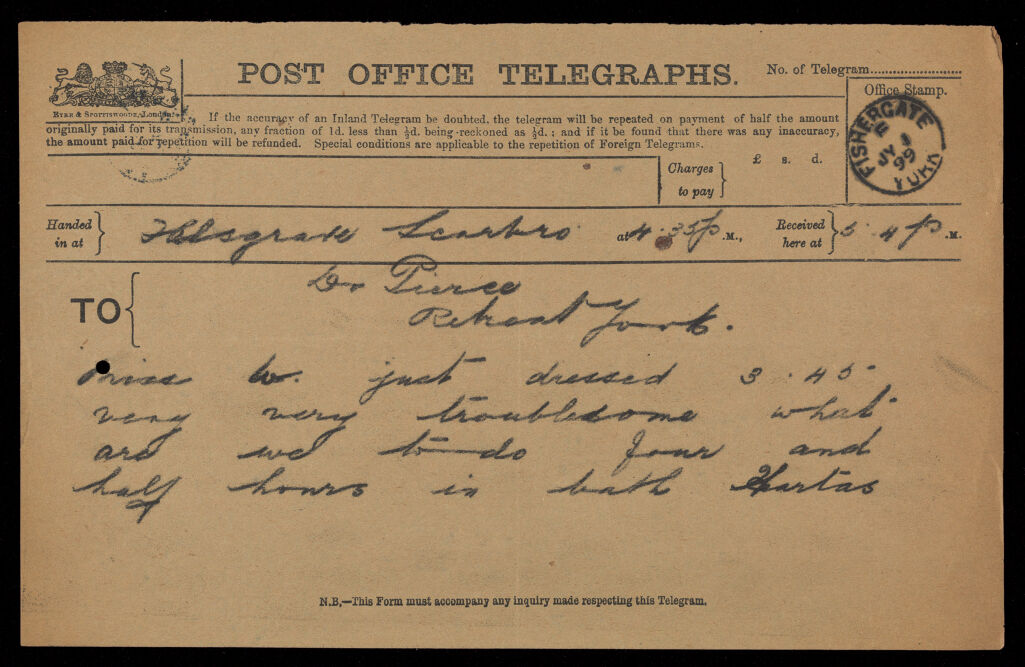 POST OFFICE TELEGRAPHS.
No. of Telegram
Office Stamp.
EYRE & SPOTTISWOODE, London.
If the accuracy of an Inland Telegram be doubted, the telegram will be repeated on payment of half the amount
originally paid for its transmission, any fraction of 1d. less than ½d. being reckoned as ½d.; and if it be found that there was any inaccuracy,
the amount paid for repetition will be refunded. Special conditions are applicable to the repetition of Foreign Telegrams.
FISHERGATE
JY 1
99
YORK
Charges
to pay
£ s. d.
Handed
in at
Falsgrave Scarbro at 4.35 p .M.,
Received
here at
5.4 p .M.
TO
Dr Pierce
Retreat York.
Miss W. just dressed 3.45
very very troublesome what
are we to do four and
half hours in bath Hartas
N.B.—This Form must accompany any inquiry made respecting this Telegram.